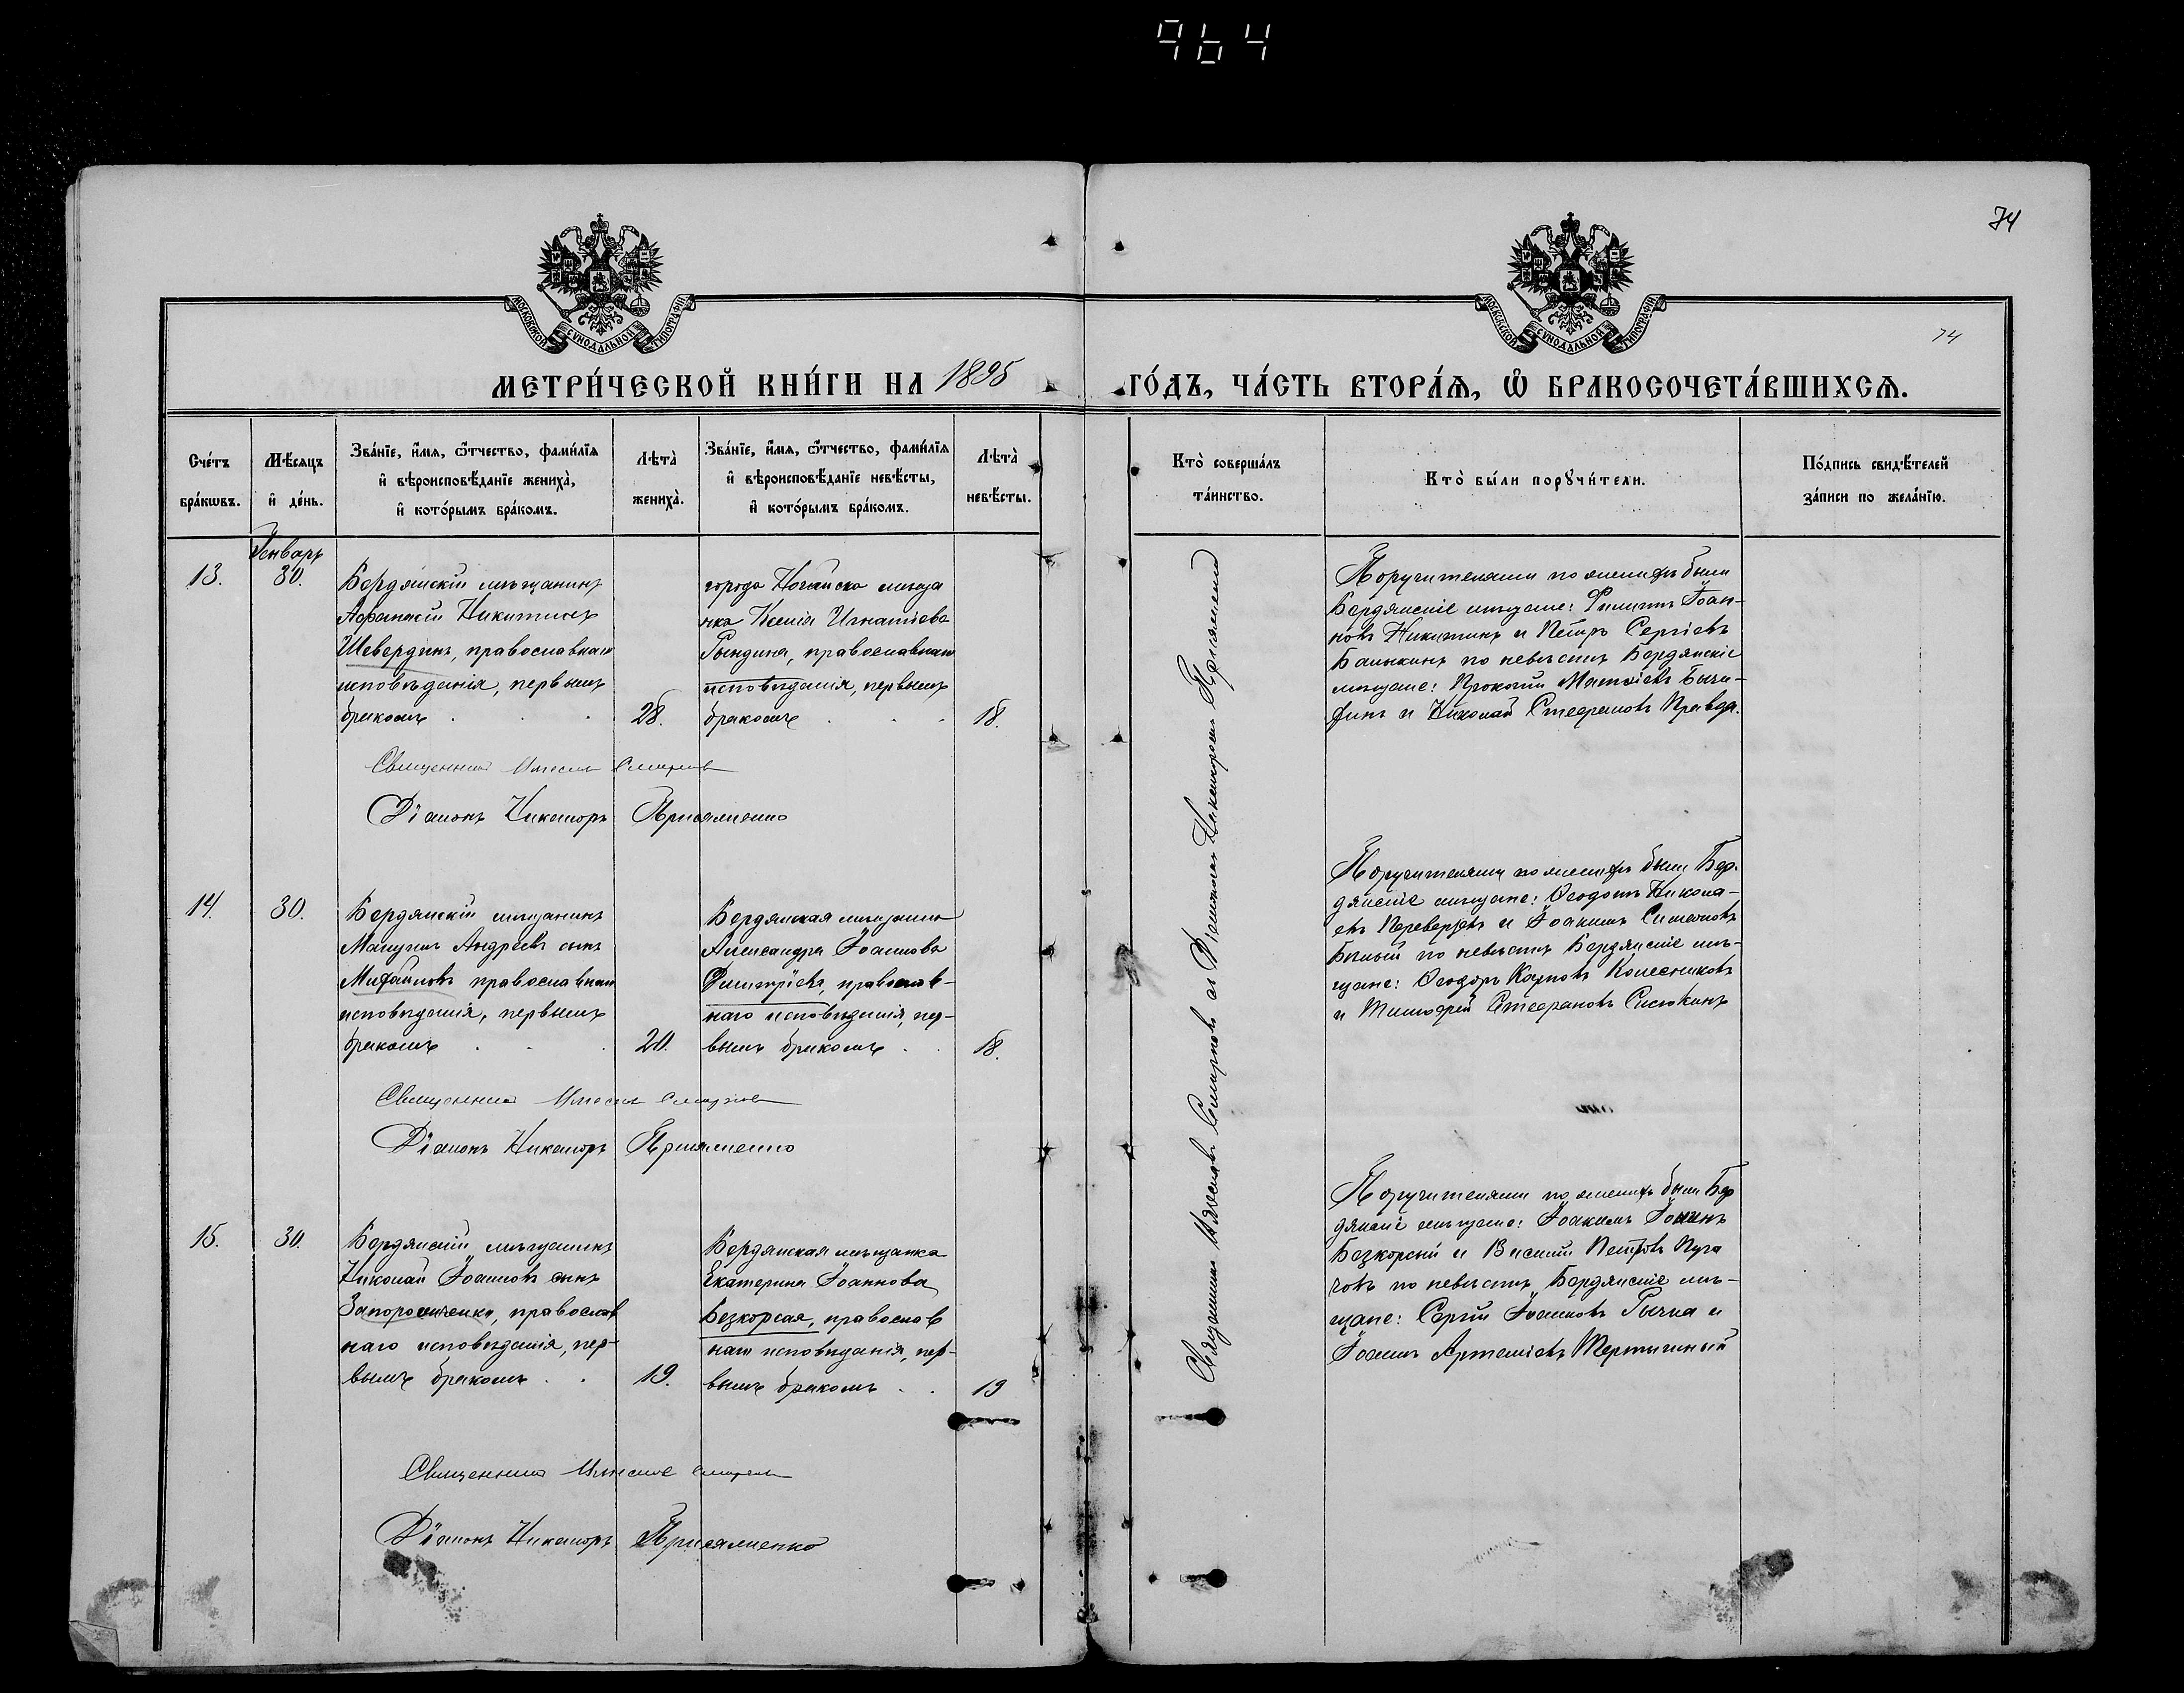 964
74
74
МОСКОВСКОЙ СѴНОДАЛЬНОЙ ТИПОГРАФІИ
МОСКОВСКОЙ СѴНОДАЛЬНОЙ ТИПОГРАФІИ
МЕТРИ́ЧЕСКОЙ КНИ́ГИ НА 1895 ГО́ДЪ, ЧА́СТЬ ВТОРА́Ѧ, Ѽ БРАКОСОЧЕТА́ВШИХСѦ.
Сче́тъ
бра́кѡвъ.
Мѣ́сяцъ
и҆ де́нь.
Зва́нїе, и҆́мя, ѻ҆́тчество, фами́лїя
и҆ вѣроисповѣ́данїе жениха̀,
и҆ кото́рымъ бра́комъ.
Лѣта̀
жениха̀.
Зва́нїе, и҆́мя, ѻ҆́тчество, фами́лїя
и҆ вѣроисповѣ́данїе невѣ́сты,
и҆ кото́рымъ бра́комъ.
Лѣта̀
невѣ́сты.
Кто̀ соверша́лъ
та́инство.
Кто̀ бы́ли порꙋчи́тели.
По́дпись свидѣ́телей
за́писи по жела́нїю.
Январь
13.
30.
Бердянскій мѣщанинъ
Афанасій Никитинъ
Шевердинъ, православнаго
исповѣданія, первымъ
бракомъ
28.
города Ногайска мѣща
нка Ксенія Игнатіева
Рындина, православнаго
исповѣданія, первымъ
бракомъ
18.
Поручителями по женихѣ были
Бердянскіе мѣщане: Филиппъ Іоан-
новъ Никитинъ и Петръ Сергіевъ
по невѣстѣ Бердянскіе
мѣщане: Прокопій
и Николай Стефановъ Правда.
Священникъ Смирновъ
Діаконъ Никаноръ Присяженко
14.
30.
Бердянскій мѣщанинъ
Андреевъ сынъ
Михайловъ православнаго
исповѣданія, первымъ
бракомъ
20.
Бердянская мѣщанка
Александра Іоаннова
православ-
наго исповѣданія, пер-
вымъ бракомъ
18.
Поручителями по женихѣ были Бер-
дянскіе мѣщане: Ѳеодотъ Никола-
евъ и Іоакимъ Симеоновъ
Бѣлый по невѣстѣ Бердянскіе мѣ-
щане: Ѳеодоръ Карповъ Колесниковъ
и Тимофей Стефановъ
Священникъ Смирновъ
Діаконъ Никаноръ Присяженко
15.
30.
Бердянскій мѣщанинъ
Николай Іоанновъ сынъ
православ
наго исповѣданія, пер-
вымъ бракомъ
19.
Бердянская мѣщанка
Екатерина Іоаннова
Безкорсая, православ
наго исповѣданія, пер-
вымъ бракомъ
19
Поручителями по женихѣ были Бер
дянскіе мѣщане: Іоакимъ
и Василій Петровъ Пуга
човъ по невѣстѣ Бердянскіе мѣ-
щане: Сергій Іоанновъ и
Іоаннъ Артеміевъ
Священникъ Смирновъ
Діаконъ Никаноръ Присяженко
Священникъ Смирновъ съ Діакономъ Никаноромъ Присяженко